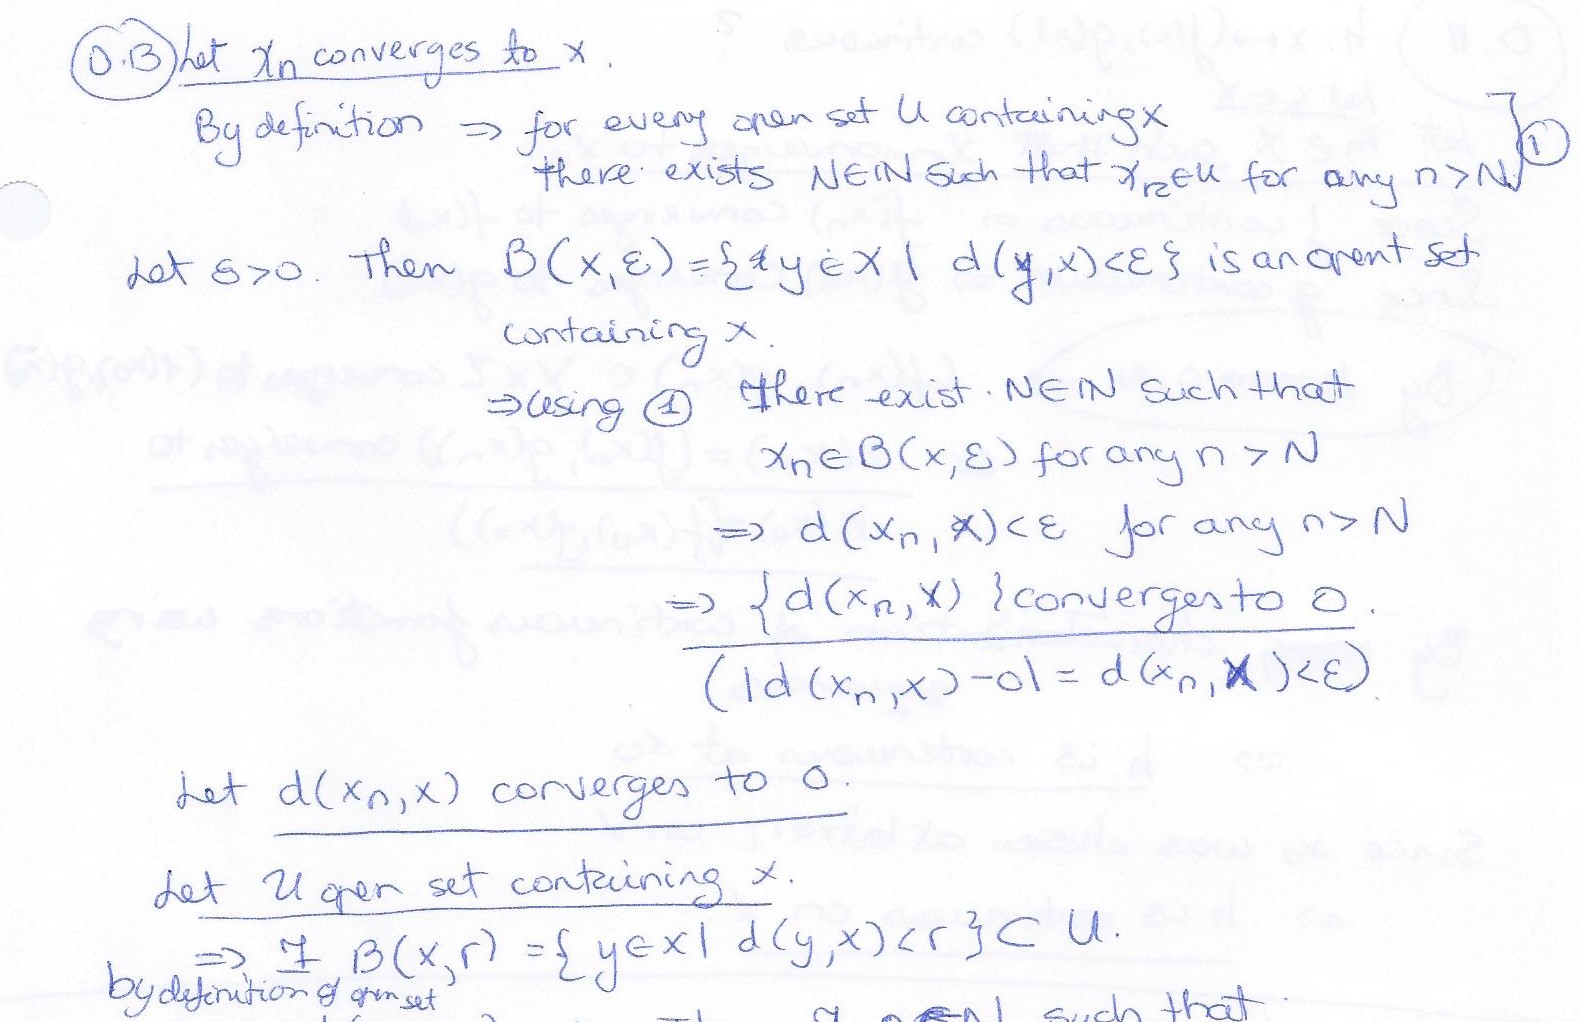 0.B) Let xn converges to x.
By definition ⇒ for every open set U containing x
there exists N∈ℕ such that xn∈U for any n>N ] ①
Let ε>0. Then B(x,ε)={y∈X | d(y,x)<ε} is an opent set
containing x.
⇒ using ① there exist N∈ℕ such that
xn∈B(x,ε) for any n>N
⇒ d(xn,x)<ε for any n>N
⇒ {d(xn,x)} converges to 0.
(|d(xn,x)-0| = d(xn,x)<ε)
Let d(xn,x) converges to 0.
Let U open set containing x.
⇒ ∃ B(x,r) = {y∈X | d(y,x)<r} ⊂ U.
by definition of open set
such that